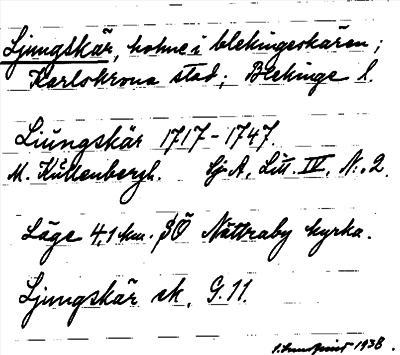 Ljungskär, holme i blekingeskären;
Karlskrona stad; Blekinge l.
Liungskär 1717-1747.
M. Küllenbergh. Sj. A, Litt. IV, N:. 2.
Läge 4,1 km. SÖ Nättraby kyrka.
Ljungskär ek. G. 11.
1938.